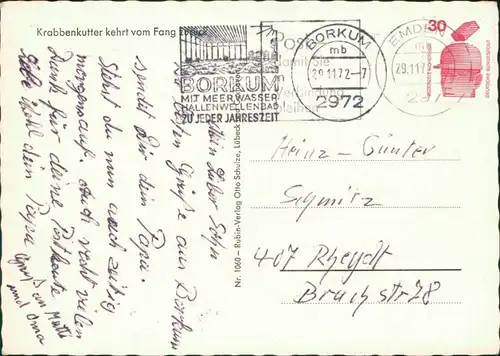 Krabbenkutter kehrt vom Fang zurück
BORKUM
MIT MEERWASSER
HALLENWELLENBAD
ZU JEDER JAHRESZEIT
BORKUM
mb
29.11.72-7
2972
EMDEN
29.11.7
30
DEUTSCHE BUNDESPOST
Mein lieber Sohn
Die besten Grüße aus Borkum
sendet Dir dein Papa.
Stehst du nun auch zeitig
morgens auf. Auch recht vielen
Dank für deine Postkarte
Lebe wohl dein Papa
Gruß an Mutti
und Oma
Nr. 1060 – Rubin-Verlag Otto Schulze, Lübeck
Heinz-Günter
Schmitz
407 Rheydt
Bruchstr 78